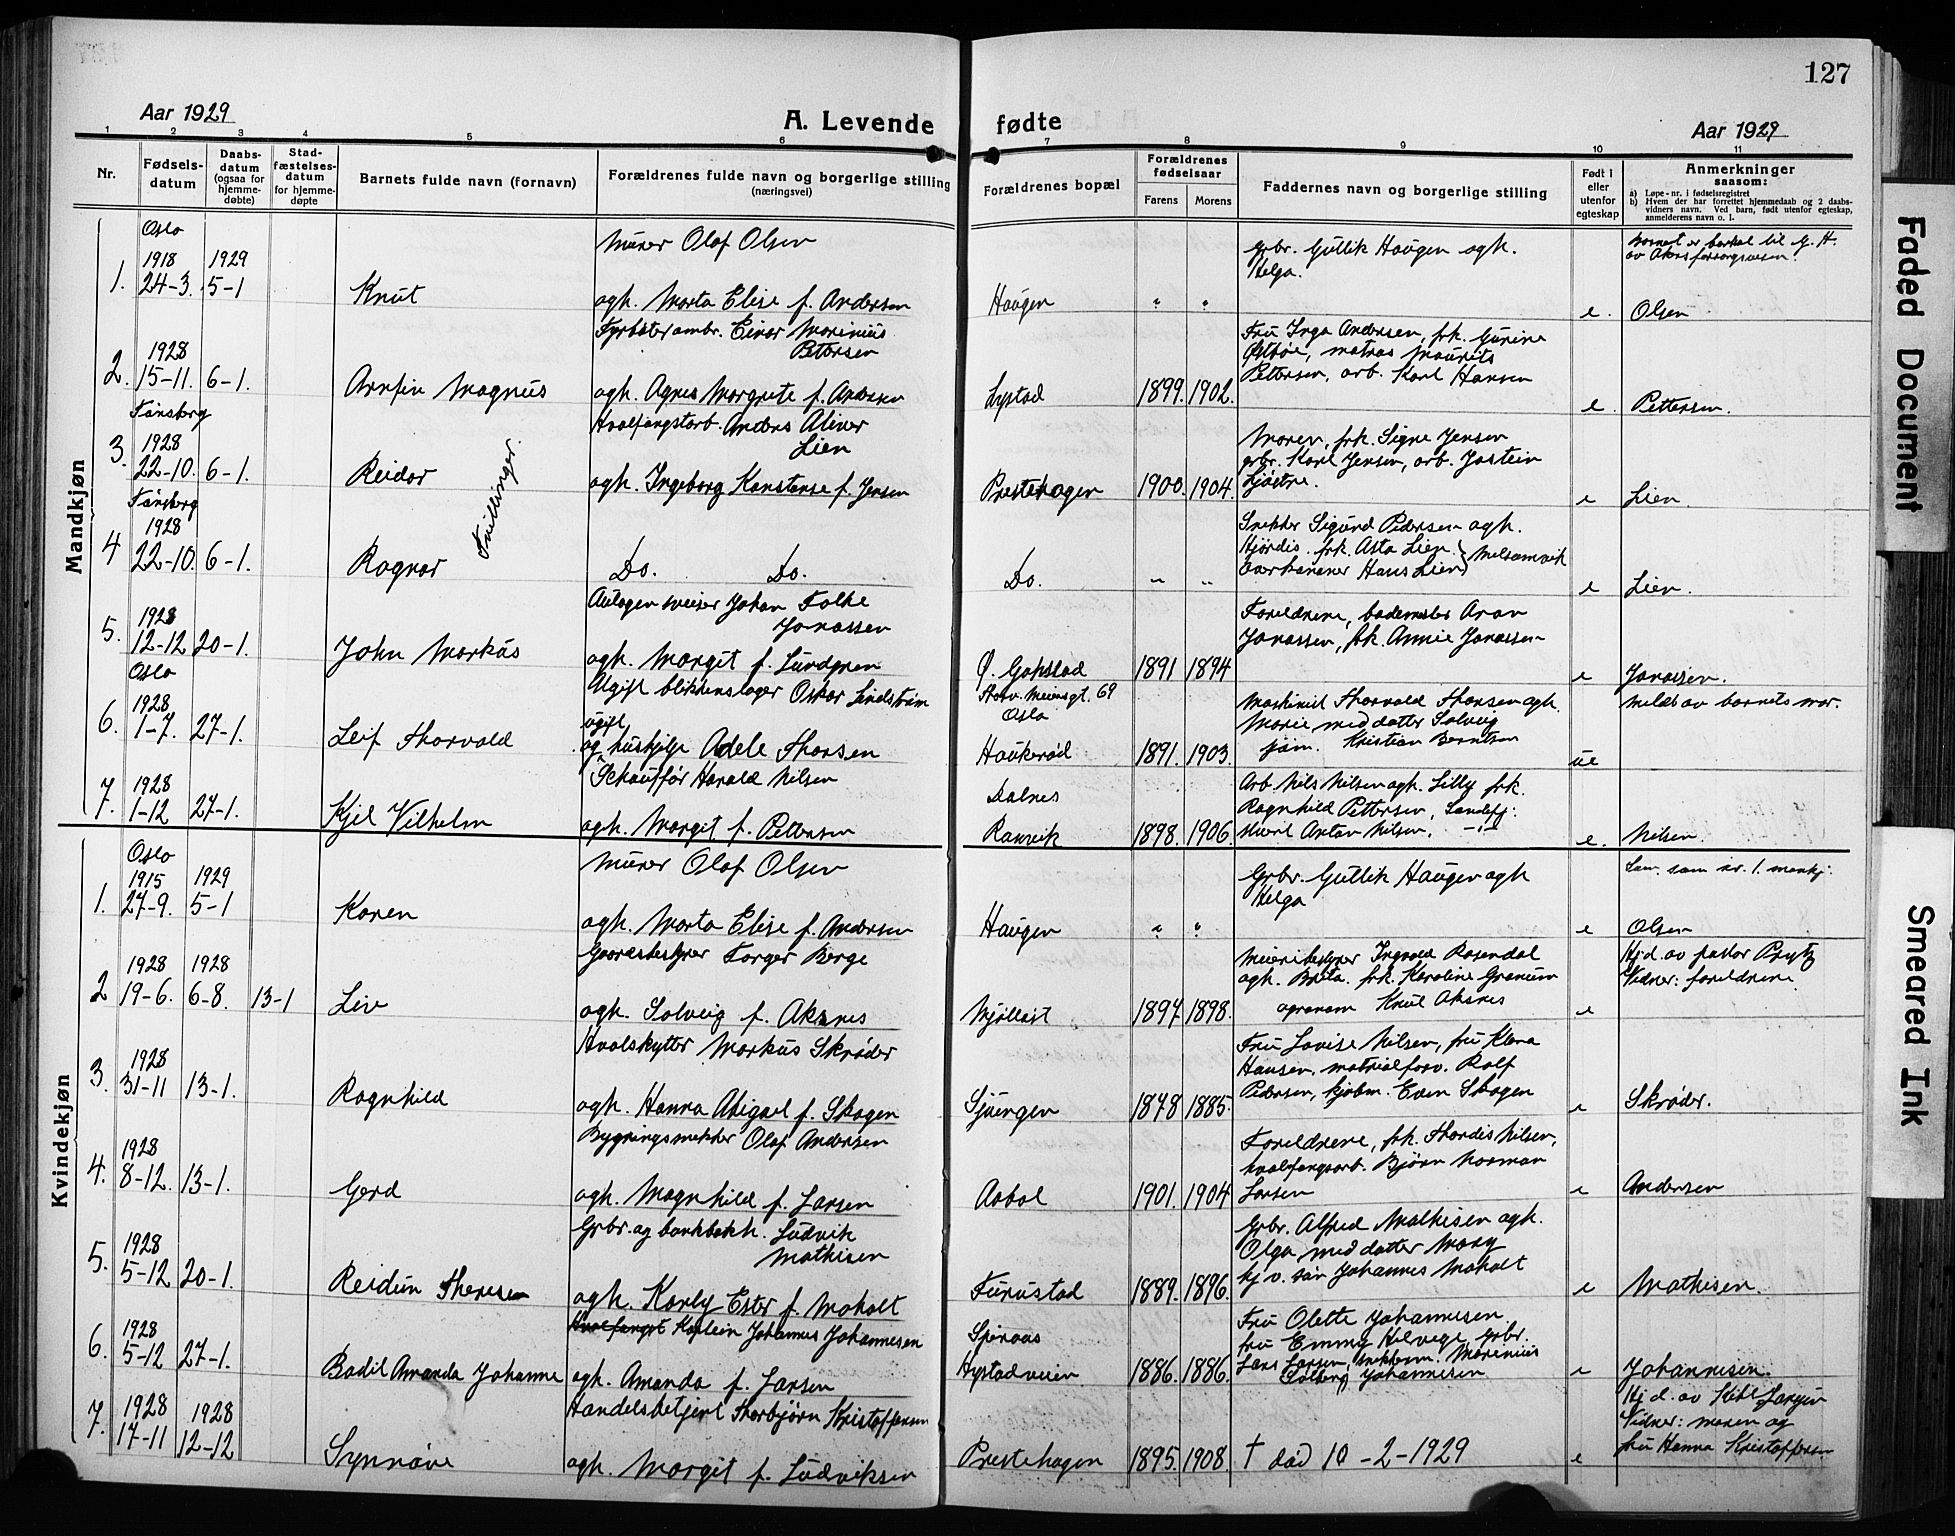 127
Aar 1929
A. Levende
fødte
Aar 1929
1 2 3 4 5 6 7 8 9 10 11
Nr.
Fødsels-
datum
Daabs-
datum
(ogsaa for
hjemme-
døbte)
Stad-
fæstelses-
datum
for hjemme-
døpte
Barnets fulde navn (fornavn)
Forældrenes fulde navn og borgerlige stilling
(næringsvei)
Forældrenes bopæl
Forældrenes
fødselsaar
Farens
Morens
Faddernes navn og borgerlige stilling
Født i
eller
utenfor
egteskap
Anmerkninger
saasom:
a) Løpe-nr. i fødselsregistret
b) Hvem der har forrettet hjemmedaab og 2 daabs-
vidners navn. Ved barn, født utenfor egteskap,
anmelderens navn o. l.
Mandkjøn
Oslo
1918 1929
1. 24-3. 5-1
Knut
Murer Olaf Olsen
ogh. Marta Elise f. Andersen
Haugen
" "
Grbr. Gullik Haugen ogh.
Helga.
e.
Olsen
1928
2. 15-11. 6-1.
Arnfin Magnus
Fyrbøter ombr. Einar Marinius
Pettersen
ogh. Agnes Margrete f. Andersen
Lystad
1899. 1902.
Fru Inga Andersen, frk. Gurine
Østbøe, matros Maurits
Pettersen, arb. Karl Hansen
e.
Pettersen.
Tønsberg
1928
3. 22-10. 6-1.
Reidar
Tvillinger.
Hvalfangstarb. Anders Oliver
Lien
ogh. Ingeborg Konstanse f. Jensen
Prestehagen
1900. 1904.
Moren, frk. Signe Jensen
grbr. Karl Jensen, arb. Jostein
e
Lien
Tønsberg
1928
4 22-10. 6-1.
Ragnar
Do. Do.
Do.
" "
Snekker Sigurd Pedersen ogh.
Hjørdis. frk. Asta Lien
Hans Lien } Melsomvik
e
Lien.
1928
5. 12-12 20-1.
John Markus
Autogen sveiser Johan Folke
Jonassen
ogh. Margit f. Lundgren
Ø. Gokstad
1891 1894
Foreldrene, bademester Aron
Jonassen, frk. Annie Jonassen
e
Jonassen.
Oslo
1928
6. 1-7. 27-1.
Leif Thorvald
Ugift blikkenslager Oskar Lindstrøm
ugift
og hushjelp Adele Thorsen
Thorv. Meiersgt. 69
Oslo
Haukerød
1891. 1903.
Maskinist Thorvald Thorsen ogh.
Marie med datter Solveig
sjøm. Kristian Berntsen
ue
Meldt av barnets mor.
1928
7. 1-12 27-1.
Kjel Vilhelm
Schauffør Harald Nilsen
ogh. Margit f. Pettersen
Dalnes
Ramvik
1898. 1906.
Arb. Nils Nilsen ogh. Lilly frk.
Ragnhild Pettersen, Sandefj:
Anton Nilsen. -"-
e.
Nilsen.
Kvindekjøn
Oslo
1915 1929
1. 27-9. 5-1
Karen
Murer Olaf Olsen
ogh. Marta Elise f. Andersen
Haugen
" "
Grbr. Gullik Haugen ogh
Helga
e
Sam. som nr. 1. mankj:
Olsen
1928 1928
2 19-6. 6-8. 13-1
Liv
Gaardsbestyrer Torger Berge
ogh. Solveig f. Aksnes
Mjøllast
1897. 1898.
Meieribestyrer Ingvald Rosendal
ogh. Brita. frk. Karoline Granum
agronom Knut Aksnes
e
Hjd. av pastor Prytz
Vidner: foreldrene.
1928
3. 31-11 13-1.
Ragnhild
Hvalskytter Markus Skrøder
ogh. Hanna Abigael f. Skogen
Sjuengen
1878 1885.
Fru Lovise Nilsen, fru Klara
Hansen, matrialforv. Rolf
Pedersen, kjøbm. Even Skogen
e
Skrøder.
1928
4. 8-12. 13-1.
Gerd
Bygningssnekker Olaf Andersen
ogh. Magnhild f. Larsen
Aabol
1901. 1904
Foreldrene, frk. Thordis Nilsen,
hvalfangerarb. Bjørn Norman
Larsen
e
Andersen
1928
5. 5-12 20-1.
Reidun Therese
Grbr. og bankbokh. Ludvik
Mathisen
ogh. Karly Ester f. Moholt
Furustad
1889. 1896.
Grbr. Alfred Mathisen ogh.
Olga med datter Mary
hj.v. søn Johannes Moholt
e
Mathisen.
1928
6. 5-12 27-1.
Bodil Amanda Johanne
Hvalfangst Kaptein Johannes Johannesen
ogh. Amanda f. Larsen
Hystadveien
1886. 1886.
Fru Olette Johannesen.
fru Emmy Helvige, Grbr.
Lars Larsen, Marinius
Solberg Johannesen
e
Johannesen.
1928 1928
7. 17-11 12-12
Synnøve
Handelsbetjent Thorbjørn Kristoffersen
ogh. Margit f. Ludviksen
Prestehagen
1895. 1908.
† død 10-2-1929
e
Hjd. av
Vidner: moren og
fru Hanna Kristoffersen
Faded Document
Smeared Ink